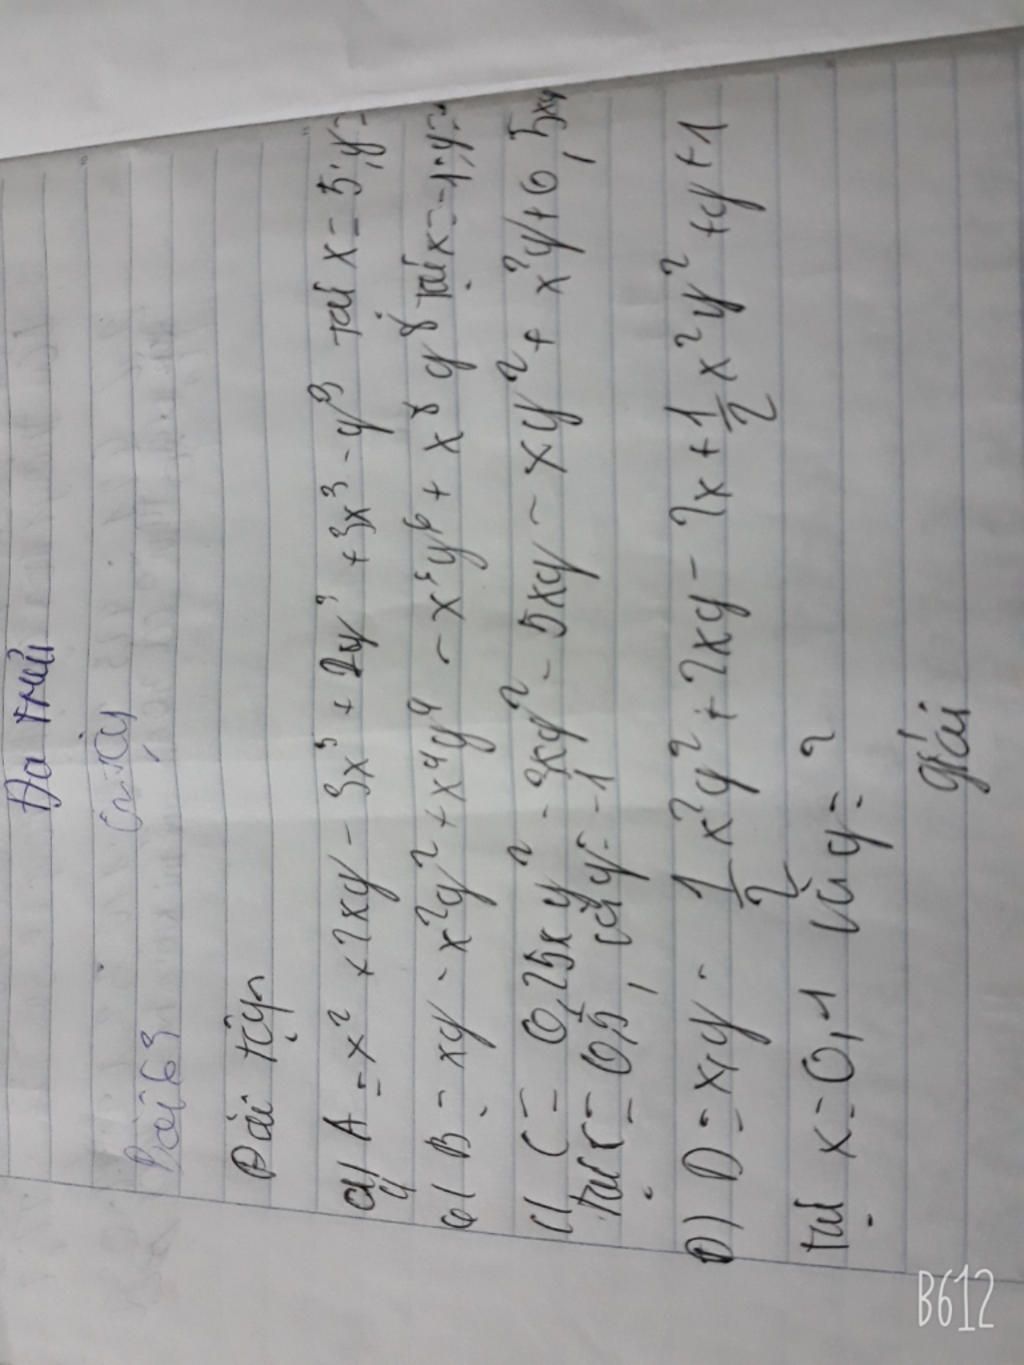 Bài 63
Bài tập
a) A = x² + 2xy - 3x³ + 2y³ + 3x³ - y³ tại x = 5; y =
b) B = xy - x²y² + x⁴y⁴ - x⁵y⁶ + x⁸y⁸ tại x = -1; y =
c) C = 0,25xy² - 3xy² - 5xy - xy² + x²y + 0,5xy
tại x = 0,5, và y = -1
D) D = xy - 1/2 x²y² + 2xy - 2x + 1/2 x²y² + y + 1
tại x = 0,1 và y = 2
giải
B612